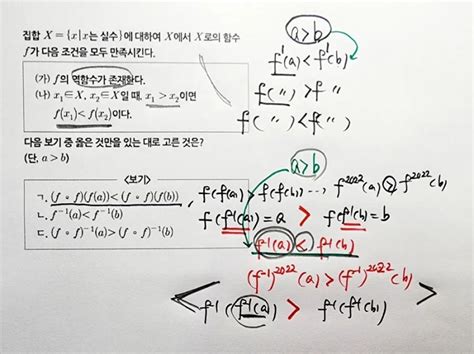 집합 X = {x|x는 실수}에 대하여 X에서 X로의 함수
f가 다음 조건을 모두 만족시킨다.
(가) f의 역함수가 존재한다.
(나) x₁∈X, x₂∈X일 때, x₁ > x₂이면
f(x₁) < f(x₂)이다.
다음 보기 중 옳은 것만을 있는 대로 고른 것은?
(단, a > b)
<보기>
ㄱ. (f∘f)(f(a)) < (f∘f)(f(b))
ㄴ. f⁻¹(a) < f⁻¹(b)
ㄷ. (f∘f)⁻¹(a) > (f∘f)⁻¹(b)
a>b
f¹(a) < f¹(b)
f( 〃 ) > f 〃
f( 〃 ) < f( 〃 )
a>b
f(f(a)) > f(f(b)) ..., f²⁰²²(a) > f²⁰²²(b)
f(f⁻¹(a)) = a > f(f⁻¹(b)) = b
f⁻¹(a) < f⁻¹(b)
(f⁻¹)²⁰²²(a) > (f⁻¹)²⁰²²(b)
f⁻¹(f⁻¹(a)) > f⁻¹(f⁻¹(b))